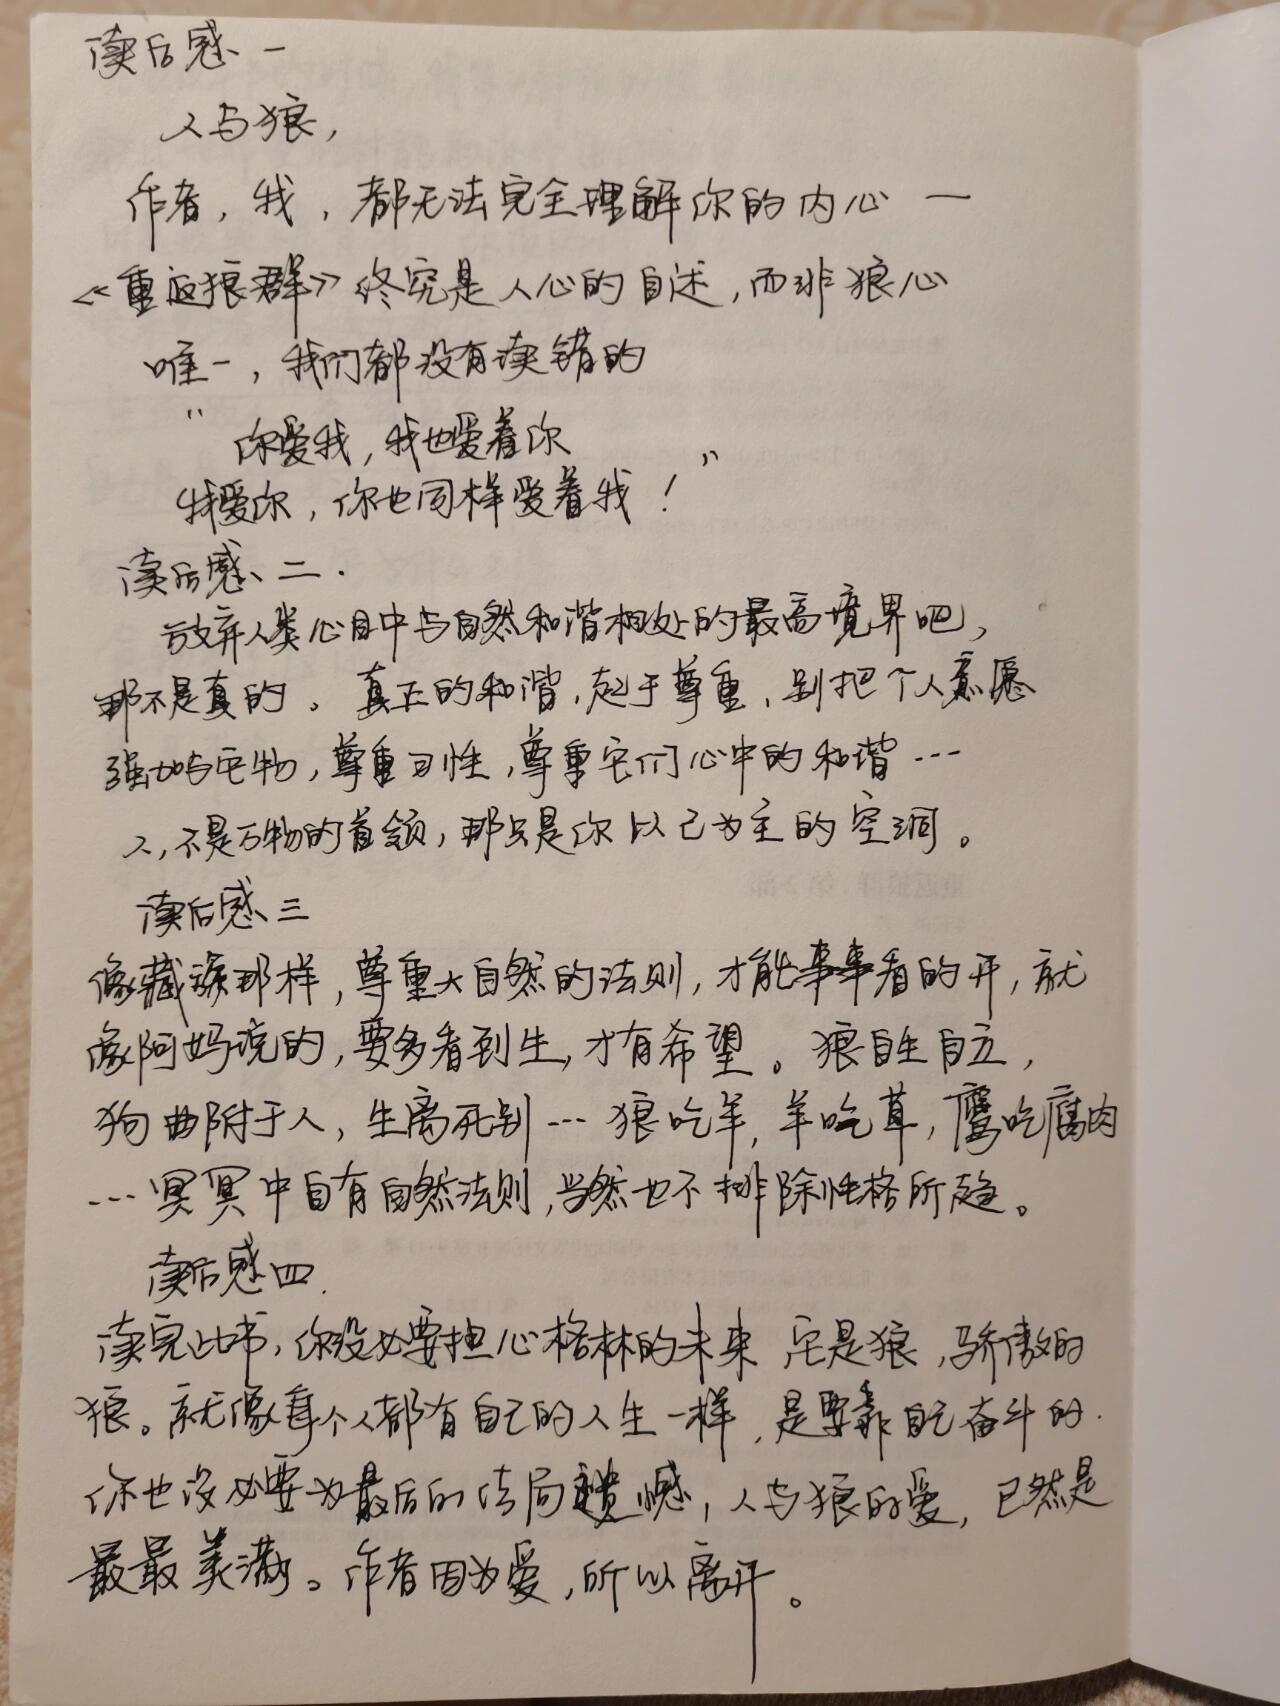 读后感一
人与狼，
作者，我，都无法完全理解你的内心 一
《重返狼群》终究是人心的自述，而非狼心
唯一，我们都没有读错的
“ 你爱我，我也爱着你
我爱你，你也同样爱着我！”
读后感二.
放弃人类心目中与自然和谐相处的最高境界吧，
那不是真的。真正的和谐，起于尊重，别把个人意愿
强加与它物，尊重习性，尊重它们心中的和谐…
人，不是万物的首领，那只是你以己为主的空洞。
读后感三
像藏族那样，尊重大自然的法则，才能事事看的开，就
像阿妈说的，要多看到生，才有希望。狼自生自立，
狗曲附于人，生离死别…狼吃羊，羊吃草，鹰吃腐肉
…冥冥中自有自然法则，当然也不排除性格所趋。
读后感四.
读完此书，你没必要担心格林的未来 它是狼，骄傲的
狼。就像每个人都有自己的人生一样，是要靠自己奋斗的.
你也没必要为最后的结局遗憾，人与狼的爱，已然是
最最美满。作者因为爱，所以离开。